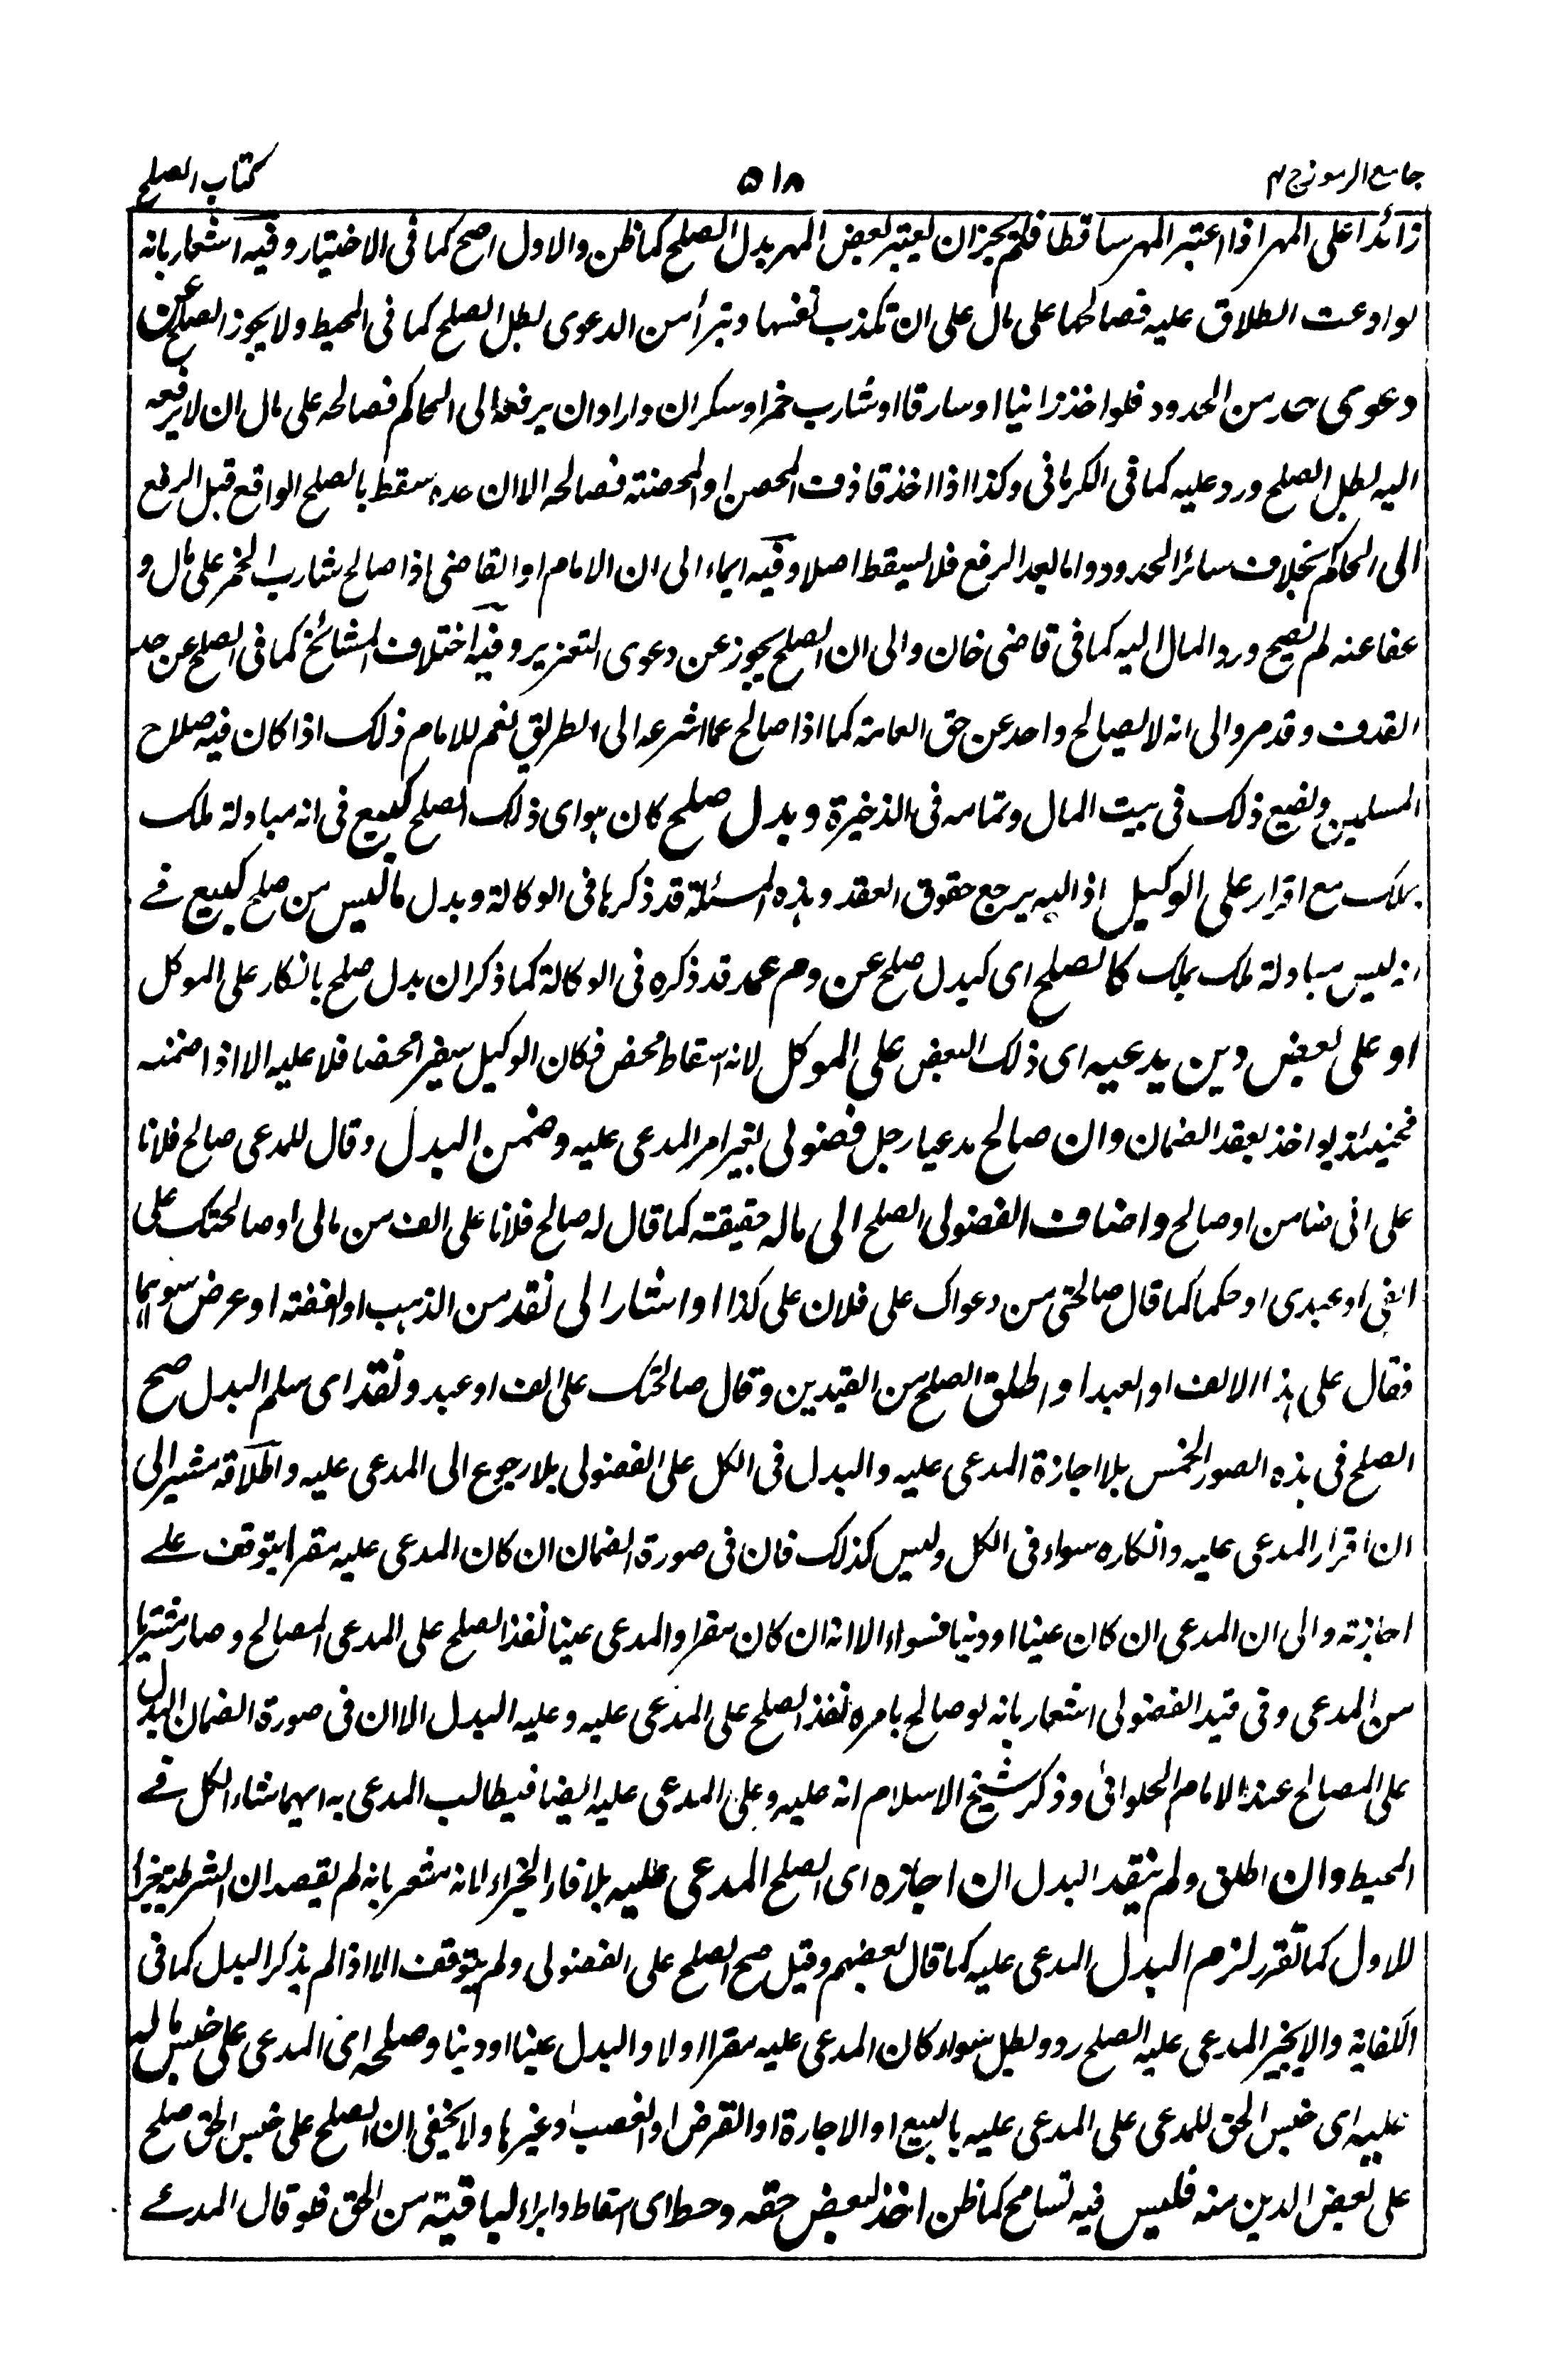 جامع الرموز ج ۳
۵۱۸
كتاب الصلح
زائدا على المهر اذا اعتبر المهر ساقطا فلم يجز ان يعتبر بعض المهر بدل الصلح كما ظن والاول اصح كما فى الاختيار وفيه اشعار بانه
لو ادعت الطلاق عليه فصالحها على مال على ان تكذب نفسها وتبرأ من الدعوى بطل الصلح كما فى المحيط ولا يجوز الصلح عن
دعوى حد من الحدود فلو اخذ زانيا او سارقا او شارب خمر او سكران واراد ان يرفعه الى الحاكم فصالحه على مال ان لا يرفعه
اليه بطل الصلح ورد عليه كما فى الكرمانى وكذا اذا اخذ قاذف المحصن او المحصنة فصالحه الا ان حده سقط بالصلح الواقع قبل الرفع
الى الحاكم بخلاف سائر الحدود واما بعد الرفع فلا يسقط اصلا وفيه ايماء الى ان الامام او القاضى اذا صالح شارب الخمر على مال و
عفا عنه لم يصح ورد المال اليه كما فى قاضى خان والى ان الصلح يجوز عن دعوى التعزير وفيه اختلاف المشائخ كما فى الصلح عن حد
القذف وقد مر والى انه لا يصالح واحد عن حق العامة كما اذا صالح عما اشرعه الى الطريق نعم للامام ذلك اذا كان فيه صلاح
المسلمين ويضع ذلك فى بيت المال وتمامه فى الذخيرة وبدل صلح كان هو اى ذلك الصلح كبيع فى انه مبادلة ملك
بملك مع اقرار على الوكيل اذ اليه يرجع حقوق العقد وهذه المسئلة قد ذكرها فى الوكالة وبدل ما ليس من صلح كبيع فے
انه ليس مبادلة ملك بملك كالصلح اى كبدل صلح عن دم عمد قد ذكره فى الوكالة كما ذكر ان بدل صلح بانكار على الموكل
او على بعض دين يدعيه اى ذلك البعض على الموكل لانه اسقاط محض فكان الوكيل سفيرا محضا فلا عليه الا اذا ضمنه
فحينئذ يواخذ بعقد الضمان وان صالح مدعيا رجل فضولى بغير امر المدعى عليه وضمن البدل وقال للمدعى صالح فلانا
على انى ضامن او صالح واضاف الفضولى الصلح الى ماله حقيقة كما قال له صالح فلانا على الف من مالى او صالحتك على
الفى او عبدى او حكما كما قال صالحنى من دعواك على فلان على كذا او اشار الى نقد من الذهب او الفضة او عرض سويهما
فقال على هذا الالف او العبد او اطلق الصلح من القيدين وقال صالحتك على الف او عبد ونقد اى سلم البدل صح
الصلح فى هذه الصور الخمس بلا اجازة المدعى عليه والبدل فى الكل على الفضولى بلا رجوع الى المدعى عليه واطلاقه مشير الى
ان اقرار المدعى عليه وانكاره سواء فى الكل وليس كذلك فان فى صورة الضمان ان كان المدعى عليه مقرا يتوقف علے
اجازته والى ان المدعى ان كان عينا او دينا فسواء الا انه ان كان مقرا والمدعى عينا نفذ الصلح على المدعى المصالح وصار مشتريا
من المدعى وفى قيد الفضولى اشعار بانه لو صالح بامره نفذ الصلح على المدعى عليه وعليه البدل الا ان فى صورة الضمان البدل
على المصالح عند الامام الحلوانى وذكر شيخ الاسلام انه عليه وعلى المدعى عليه ايضا فيطالب المدعى به ايهما شاء الكل فے
المحيط وان اطلق ولم ينقد البدل ان اجازه اى الصلح المدعى عليه بلا فاء الجزاء لانه مشعر بانه لم يقصد ان الشرطية جزاء
للاول كما تقرر لزم البدل المدعى عليه كما قال بعضهم وقيل صح الصلح على الفضولى ولم يتوقف الا اذا لم يذكر البدل كما فى
الكفاية والا يجيز المدعى عليه الصلح رد وبطل سواء كان المدعى عليه مقرا اولا والبدل عينا او دينا وصلحه اى المدعى على جنس ماله
عليه اى جنس الحق للمدعى على المدعى عليه بالبيع او الاجارة او القرض او الغصب او غيرها ولا يخفى ان الصلح على جنس الحق صلح
على بعض الدين منه فليس فيه تسامح كما ظن اخذ لبعض حقه وحط اى اسقاط وابراء لباقيته من الحق فلو قال المدعے